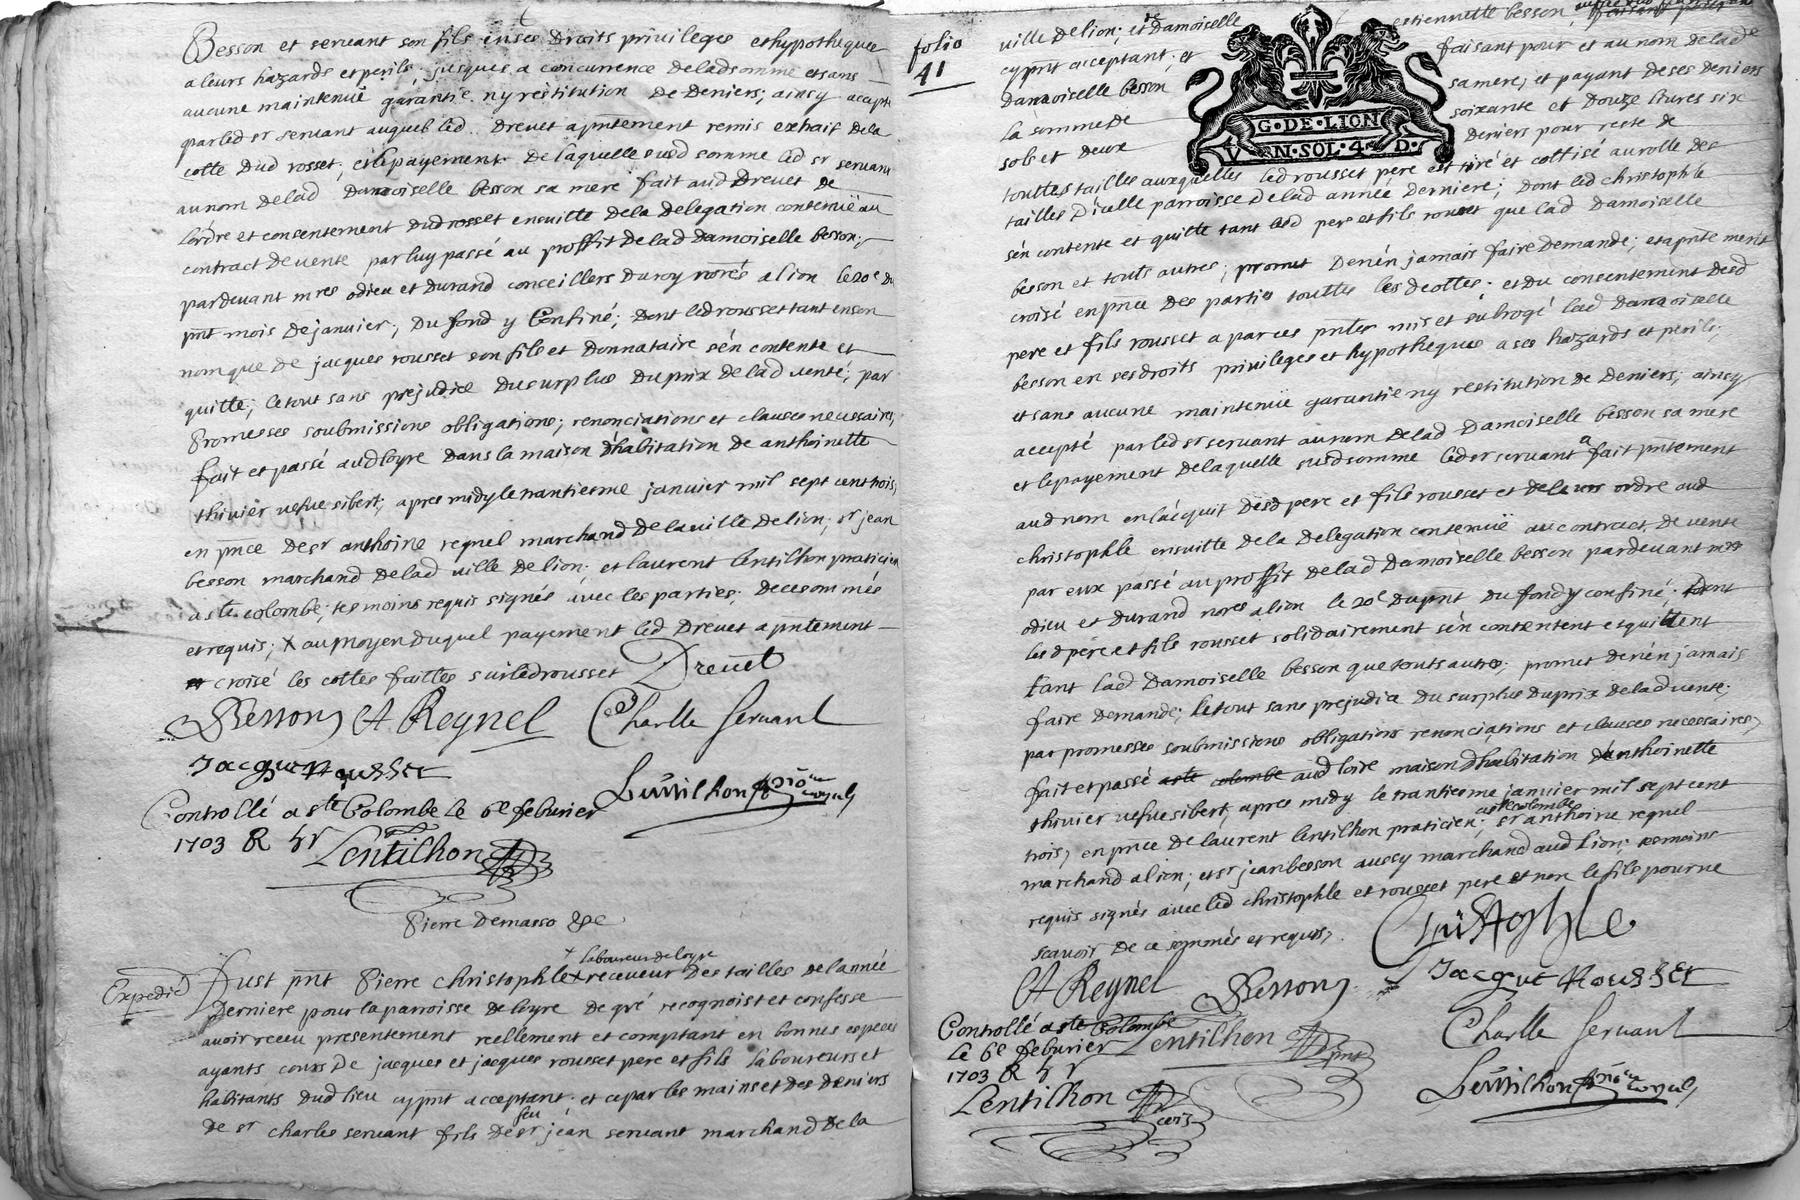 Besson et servant son fils en ses droits privileges et hypotheques
a leurs hazards et perils, jusques a concurrence de lad somme et sans
aucune maintenuë garantie ny restitution de deniers; ainsy accepté
par led sr servant auquel led drevet a pntement remis extrait de la
cotte dud rosset; et le payement de laquelle susd somme led sr servant
au nom de lad damoiselle besson sa mere fait aud Drevet de
l'ordre et consentement dud rosset ensuitte de la delegation contenuë au
contract de vente par luy passé au proffit de lad damoiselle besson;
pardevant mres odieu et durand conceillers du roy nores a lion le 20e du
pnt mois de janvier; du fond y confiné; dont led rousset tant en son
nom que de jacques rousset son fils et donnataire s'en contente et
quitte; le tout sans prejudice du surplus du prix de lad vente; par
promesses soubmissions obligations; renonciations et clauses necessaires,
fait et passé aud loyre dans la maison d'habitation de anthoinette
thivier vefve sibert; apres midy le trantiesme janvier mil sept cent trois,
en pnce de sr anthoine regnel marchand de la ville de lion; sr jean
besson marchand de lad ville de lion; et laurent lentilhon praticien
a ste colombe; tesmoins requis signés avec les parties; de ce sommés
et requis; X au moyen duquel payement led Drevet a pntement
croisé les cottes faittes sur led rousset Drevet
Besson A Reynel Charlle Servant
Jacque Rousset
Lentilhon
Controllé a ste Colombe le 6e feburier
1703 R
Lentilhon
Pierre Demasso &c
Expedié
+ laboureur de loyre
Fust pnt Pierre christophle + receveur des tailles de l'année
derniere pour la parroisse de loyre de gré recognoist et confesse
avoir receu presentement reellement et comptant en bonnes especes
ayants cours de jacques et jacques rousset pere et fils laboureurs et
habitants dud lieu cy pnt acceptant; et ce par les mains et des deniers
feu
de sr charles servant fils de sr jean servant marchand de la
folio
41
ville de lion; et de damoiselle estiennette besson,
cy pnt acceptant; et faisant pour et au nom de lade
damoiselle besson sa mere, et payant de ses deniers
la somme de soixante et douze livres six
sols et deux deniers pour reste de
G·DE·LION
V N·SOL·4 D·
touttes tailles auxquelles led rousset pere est tiré et cottisé au rolle des
tailles d'icelle parroisse de lad année derniere; dont led christophle
s'en contente et quitte tant led pere et fils rousset que lad damoiselle
besson et touts autres; promet de n'en jamais faire demande; et a pntement
croisé en pnce des parties touttes lesd cottes; et du consentement desd
pere et fils rousset a par ces pntes mis et subrogé lad damoiselle
besson en ses droits privileges et hypotheques a ses hazards et perils;
et sans aucune maintenuë garantie ny restitution de deniers; ainsy
accepté par led sr servant au nom de lad damoiselle besson sa mere
a
et le payement de laquelle susd somme led sr servant fait pntement
aud nom en l'acquit desd pere et fils rousset et de leurs ordre aud
christophle ensuitte de la delegation contenuë au contract de vente
par eux passé au proffit de lad damoiselle besson pardevant mres
odieu et durand nores a lion le 20e du pnt du fond y confiné; dont
lesd pere et fils rousset solidairement s'en contentent et quittent
tant lad damoiselle besson que touts autres; promet de n'en jamais
faire demande; le tout sans prejudice du surplus du prix de lad vente;
par promesses soubmissions obligations renonciations et clauses necessaires,
fait et passé a ste colombe aud loire maison d'habitation d'anthoinette
thivier vefve sibert, apres midy le trantiesme janvier mil sept cent
a ste colombe
trois, en pnce de laurent lentilhon praticien; sr anthoine regnel
marchand a lion; et sr jean besson aussy marchand aud Lion; tesmoins
requis signés avec led christophle et rousset pere et non le fils pour ne
scavoir de ce sommés et requis,
Christophle
A Reynel Besson Jacque Rousset
Controllé a ste Colombe
le 6e feburier Lentilhon Charlle Servant
1703 R
Lentilhon Lentilhon